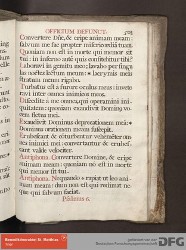 OFFICIUM DEFUNCT.
Convertere Dñe, & eripe animam meam:
salvum me fac propter misericordiã tuam.
Quoniam non est in morte qui memor sit
tui: in inferno autẽ quis confitebitur tibi?
Laboravi in gemitu meo; lavabo per singu-
las noctes lectum meum: lacrymis meis
stratum meum rigabo.
Turbatus est à furore oculus meus: invete-
ravi inter omnes inimicos meos.
Discedite à me omnes, qui operamini ini-
quitatem: quoniam exaudivit Dominus vo-
cem fletus mei.
Exaudivit Dominus deprecationem meã:
Dominus orationem meam suscepit.
Erubescant & conturbentur vehemẽter om-
nes inimici mei: convertantur & erubes-
cant valde velociter.
Antiphona. Convertere Domine, & eripe
animam meam: quoniam non est in morte
qui memor sit tui.
Antiphona. Nequando rapiat ut leo ani-
mam meam: dum non est qui redimat ne-
que qui salvum faciat.
Psalmus